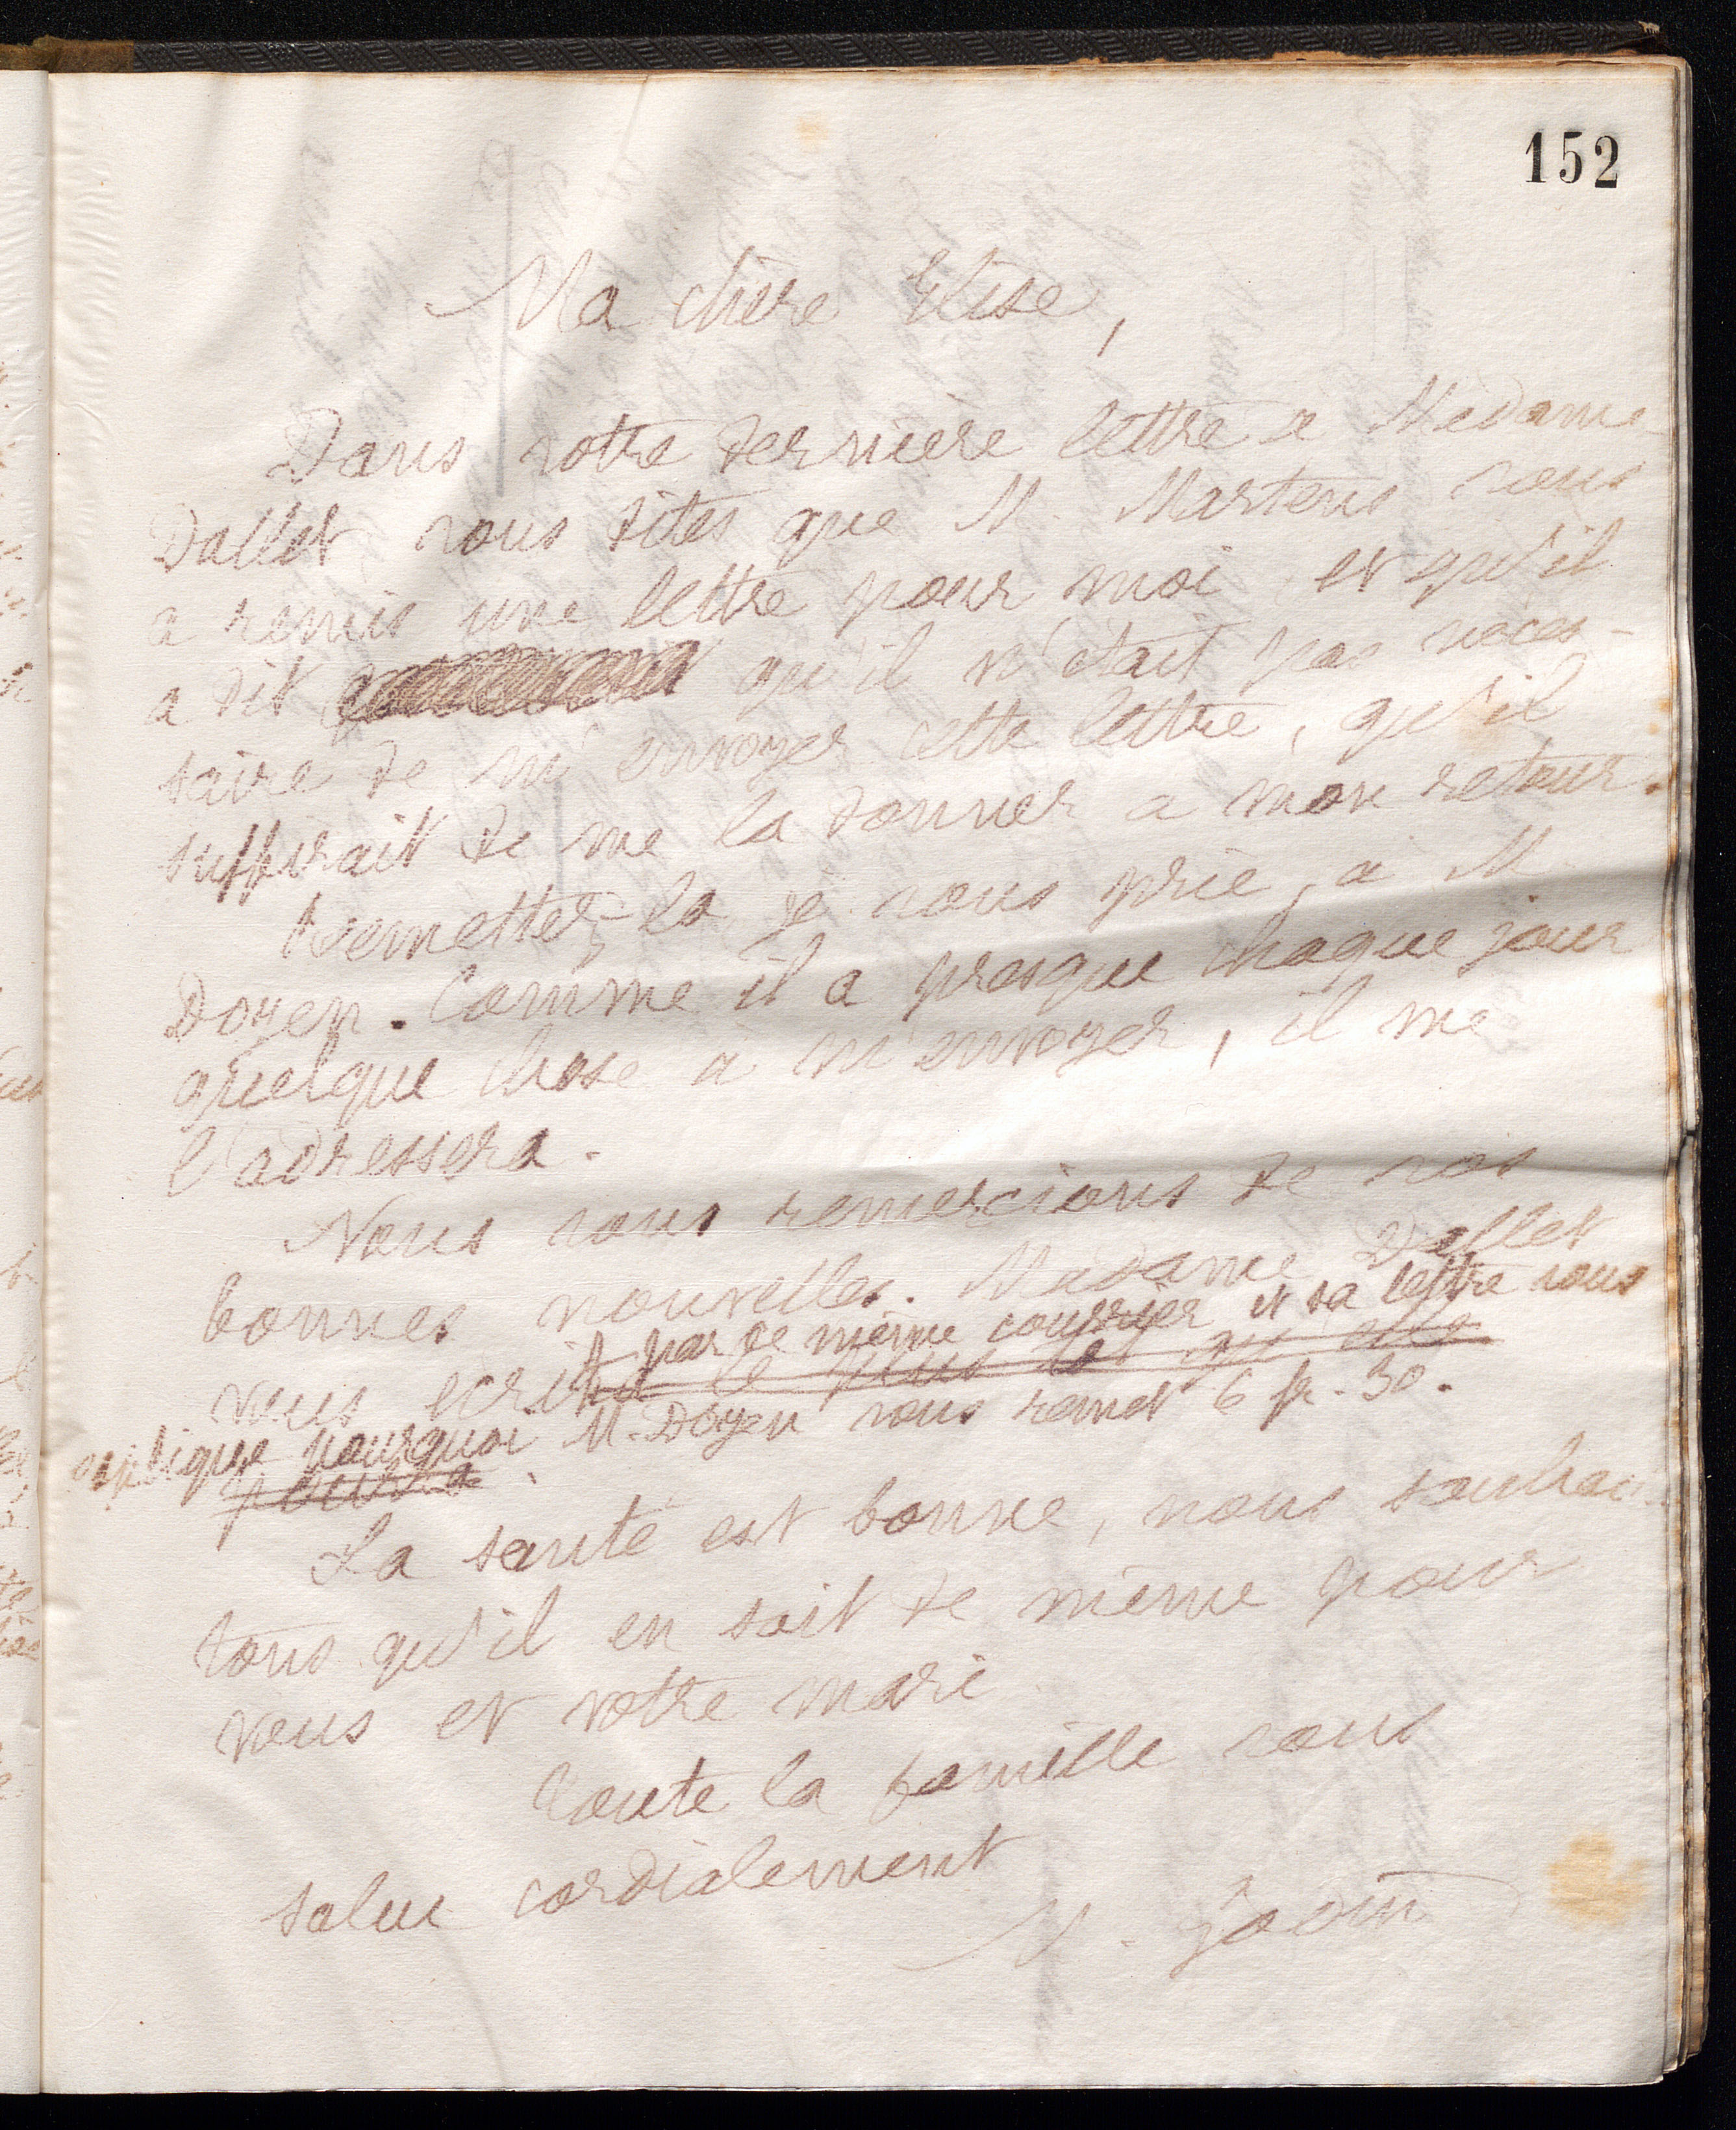 152
Ma chère Elise,
Dans votre dernière lettre à Madame
Dallet vous dites que M. Martens vous
a remis une lettre pour moi et qu'il
a dit qu'il n'était pas néces-
saire de m'envoyer cette lettre, qu'il
suffirait de me la donner à mon retour.
Remettez-la je vous prie, à M.
Doyen. Comme il a presque chaque jour
quelque chose à m'envoyer, il me
l'adressera.
Nous vous remercions de vos
bonnes nouvelles. Madame Dallet
par ce même courrier et sa lettre vous
vous écrit le plus tôt qu'elle
explique pourquoi M. Doyen vous remet 6 fr. 30.
pourra
La santé est bonne, nous souhai-
tons qu'il en soit de même pour
vous et votre mari
Toute la famille vous
salue cordialement